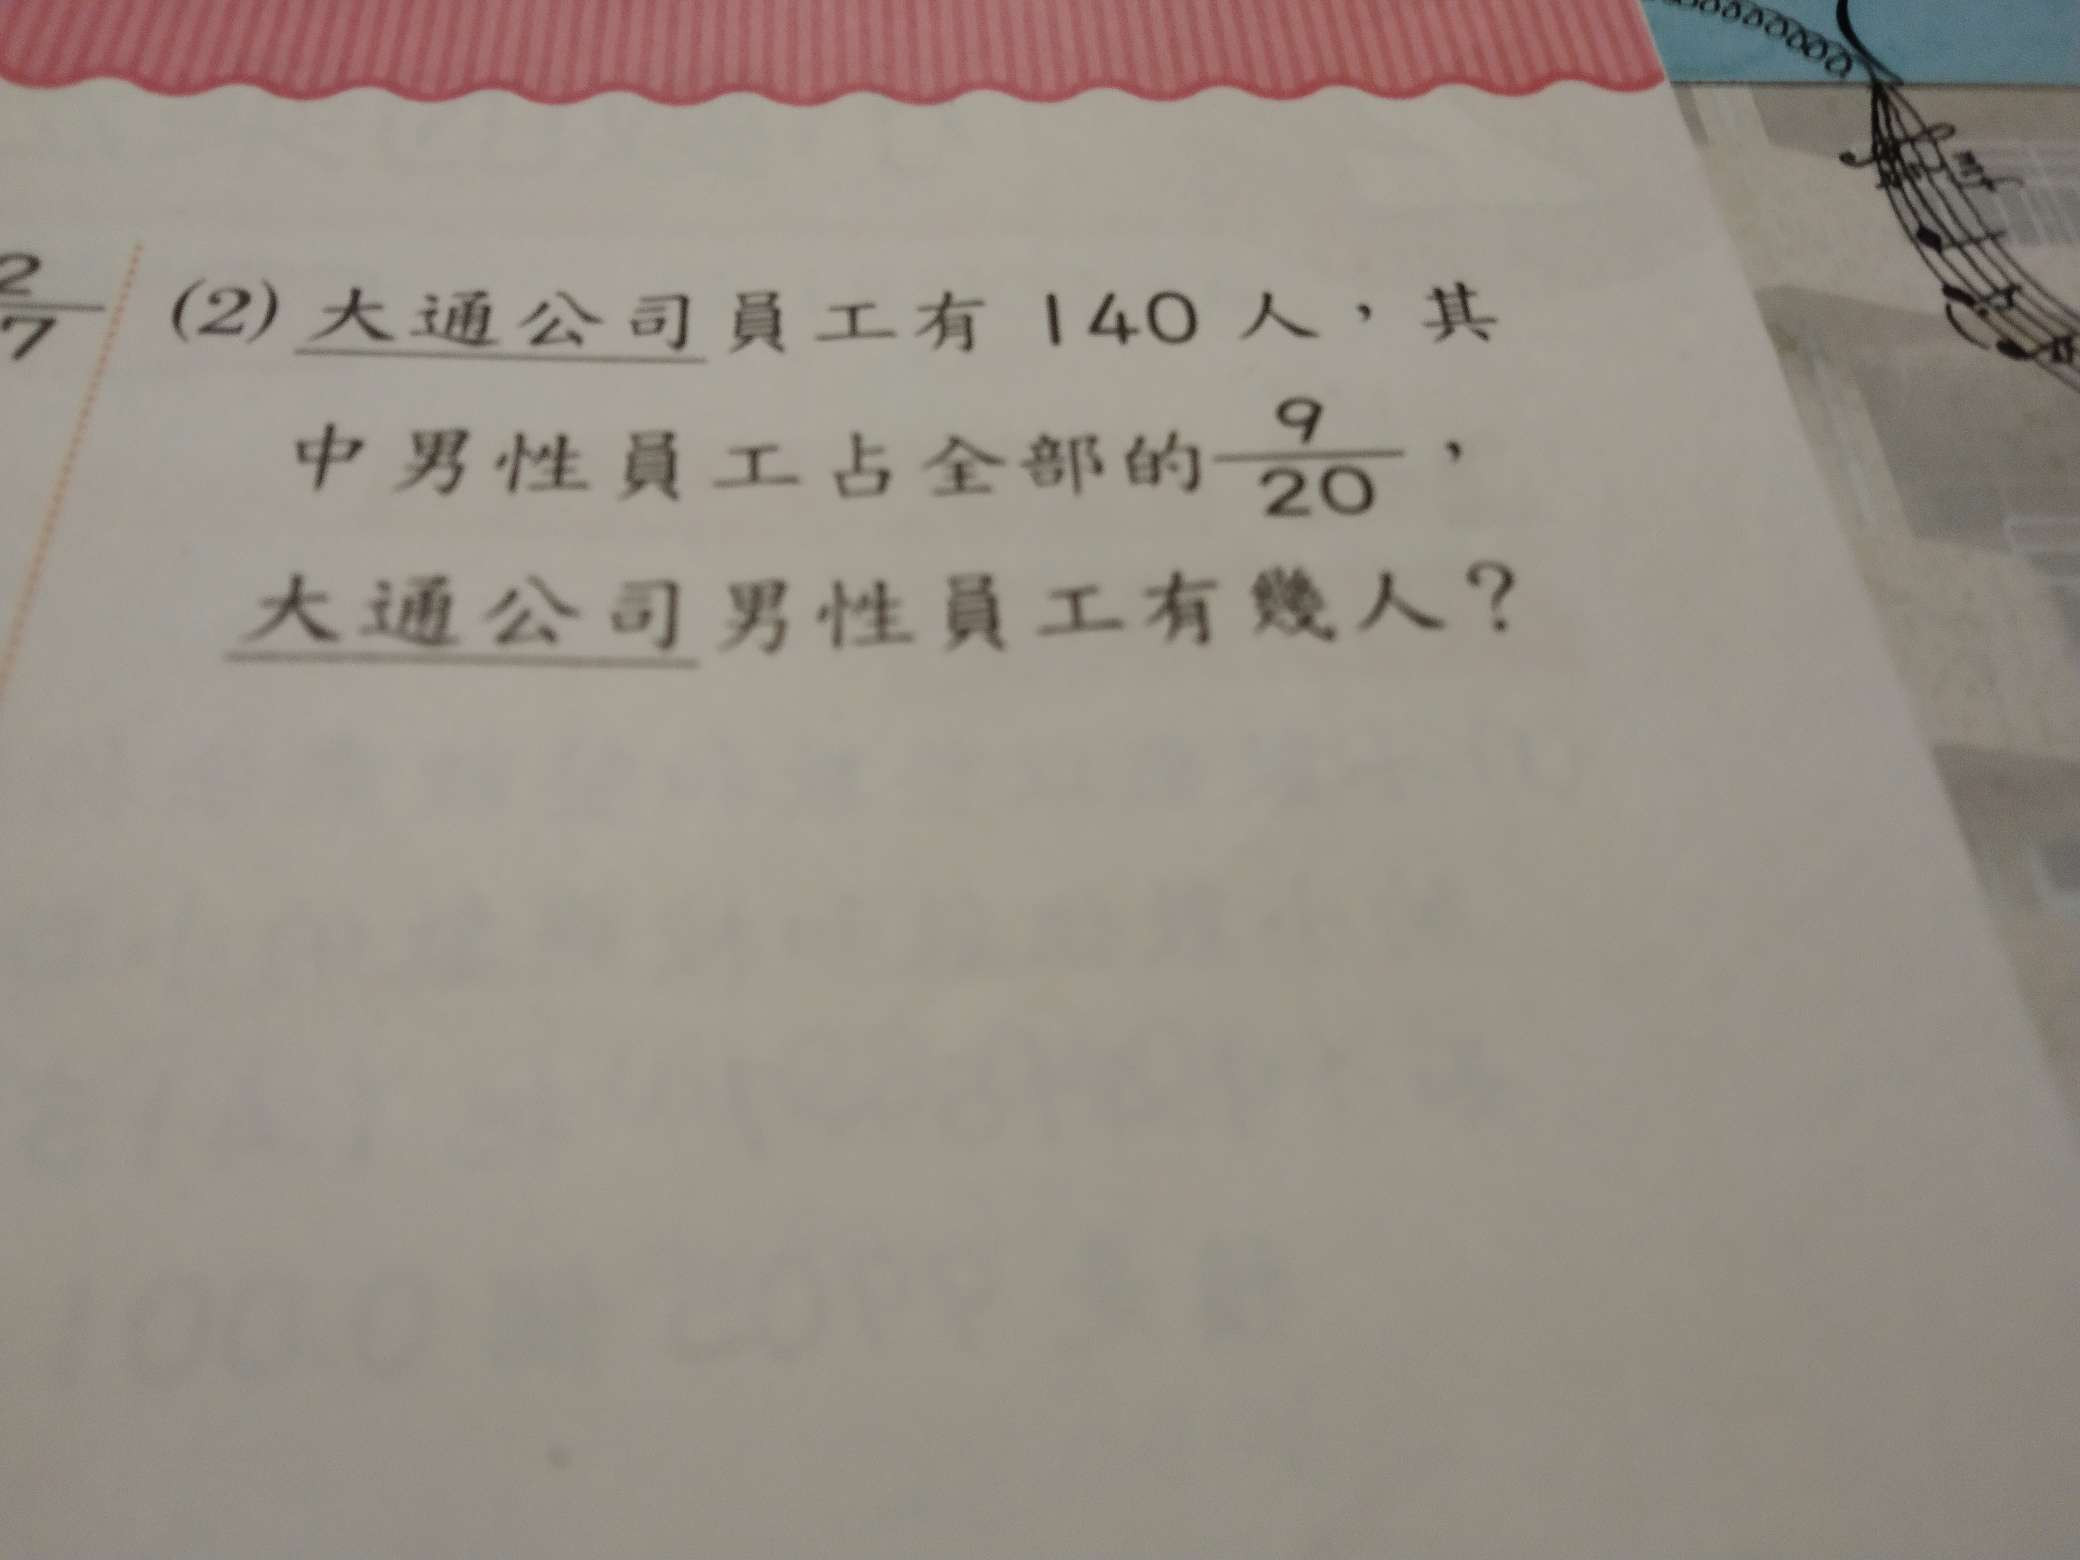 2/7
(2) 大通公司員工有 140 人，其
中男性員工占全部的 9/20，
大通公司男性員工有幾人？
mf